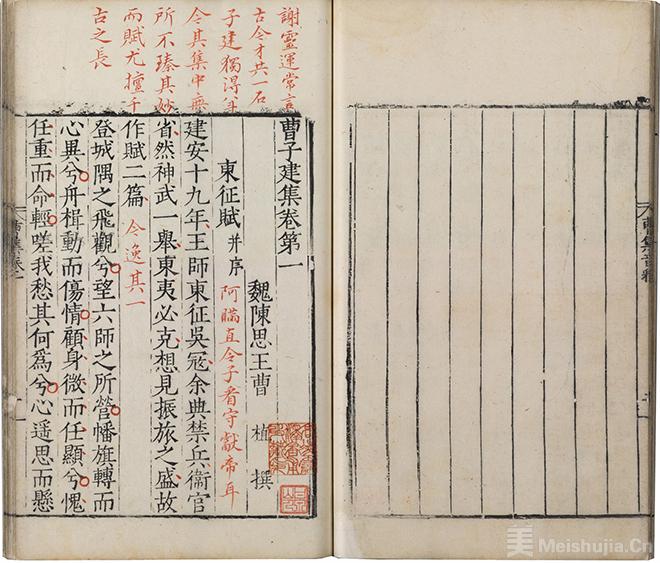 謝靈運常言
古今才共一石
子建獨得
今其集中無
所不臻其妙
而賦尤擅千
古之長
曹子建集卷第一
魏陳思王曹植撰
東征賦并序
阿瞞直令子看守獻帝耳
建安十九年王師東征吳冦余典禁兵衞官
省然神武一舉東夷必克想見振旅之盛故
作賦二篇
今逸其一
登城隅之飛觀兮望六師之所營幡旗轉而
心異兮舟楫動而傷情顧身微而任顯兮愧
任重而命輕嗟我愁其何爲兮心遥思而懸
美 Meishujia.Cn